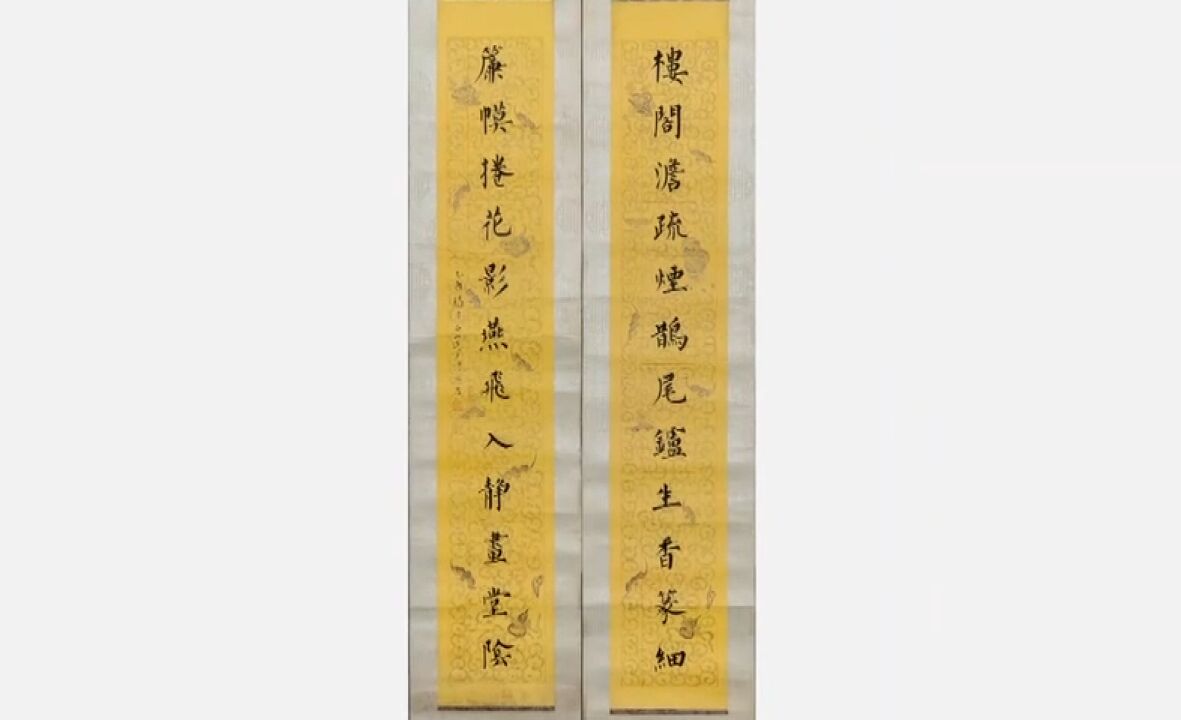 樓閣澹疏煙鵲尾鑪生香篆細
簾幙捲花影燕飛入靜畫堂陰